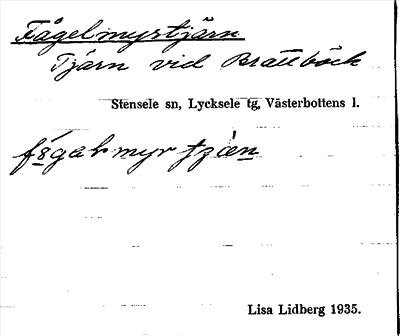 Fågelmyrtjärn
Tjärn vid Brattbäck
Stensele sn, Lycksele tg, Västerbottens l.
Lisa Lidberg 1935.